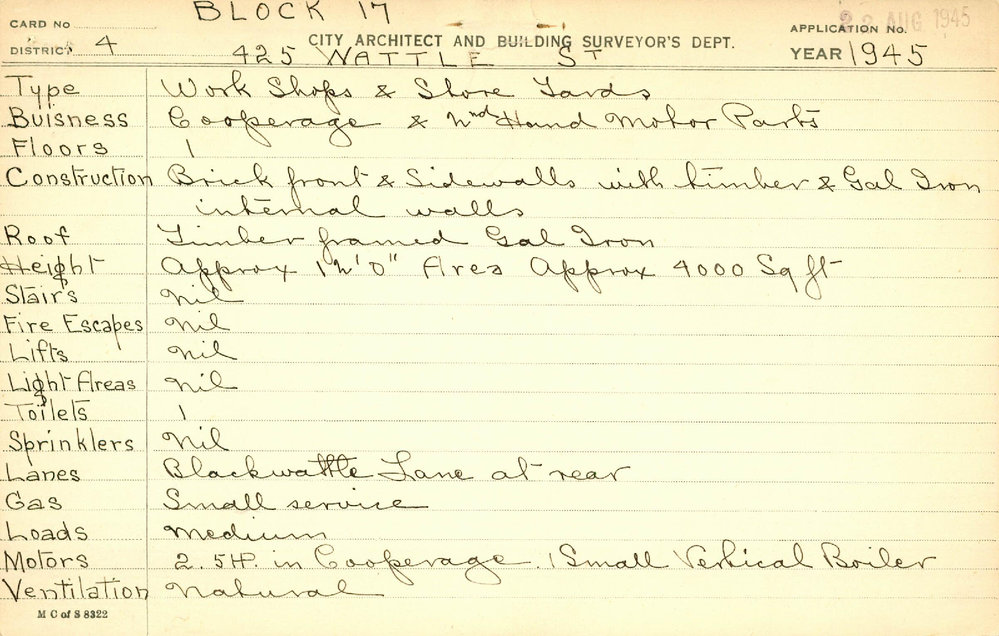 BLOCK 17
CARD NO
22 AUG 1945
APPLICATION NO.
DISTRICT 4
CITY ARCHITECT AND BUILDING SURVEYOR'S DEPT.
425 WATTLE ST
YEAR 1945
Type Work Shops & Store Yards
Buisness Cooperage & 2nd Hand Motor Parts
Floors 1
Construction Brick front & Sidewalls with timber & Gal Iron
internal walls
Roof Timber framed Gal Iron
Height Approx 12'0" Area Approx 4000 Sq ft
Stairs Nil
Fire Escapes Nil
Lifts Nil
Light Areas Nil
Toilets 1
Sprinklers Nil
Lanes Blackwattle Lane at rear
Gas Small service
Loads Medium
Motors 2. 5 HP. in Cooperage. 1 Small Vertical Boiler
Ventilation Natural
M C of S 8322